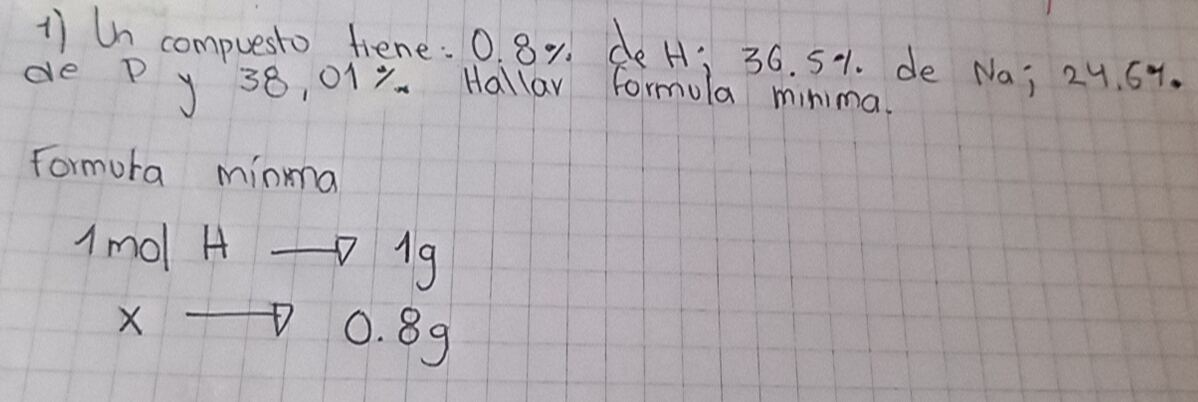 1) Un compuesto tiene: 0.8% de H; 36.5% de Na; 24.6%
de P y 38,01%. Hallar formula minima.
Formula mínima
1mol H → 1g
x → 0.8g